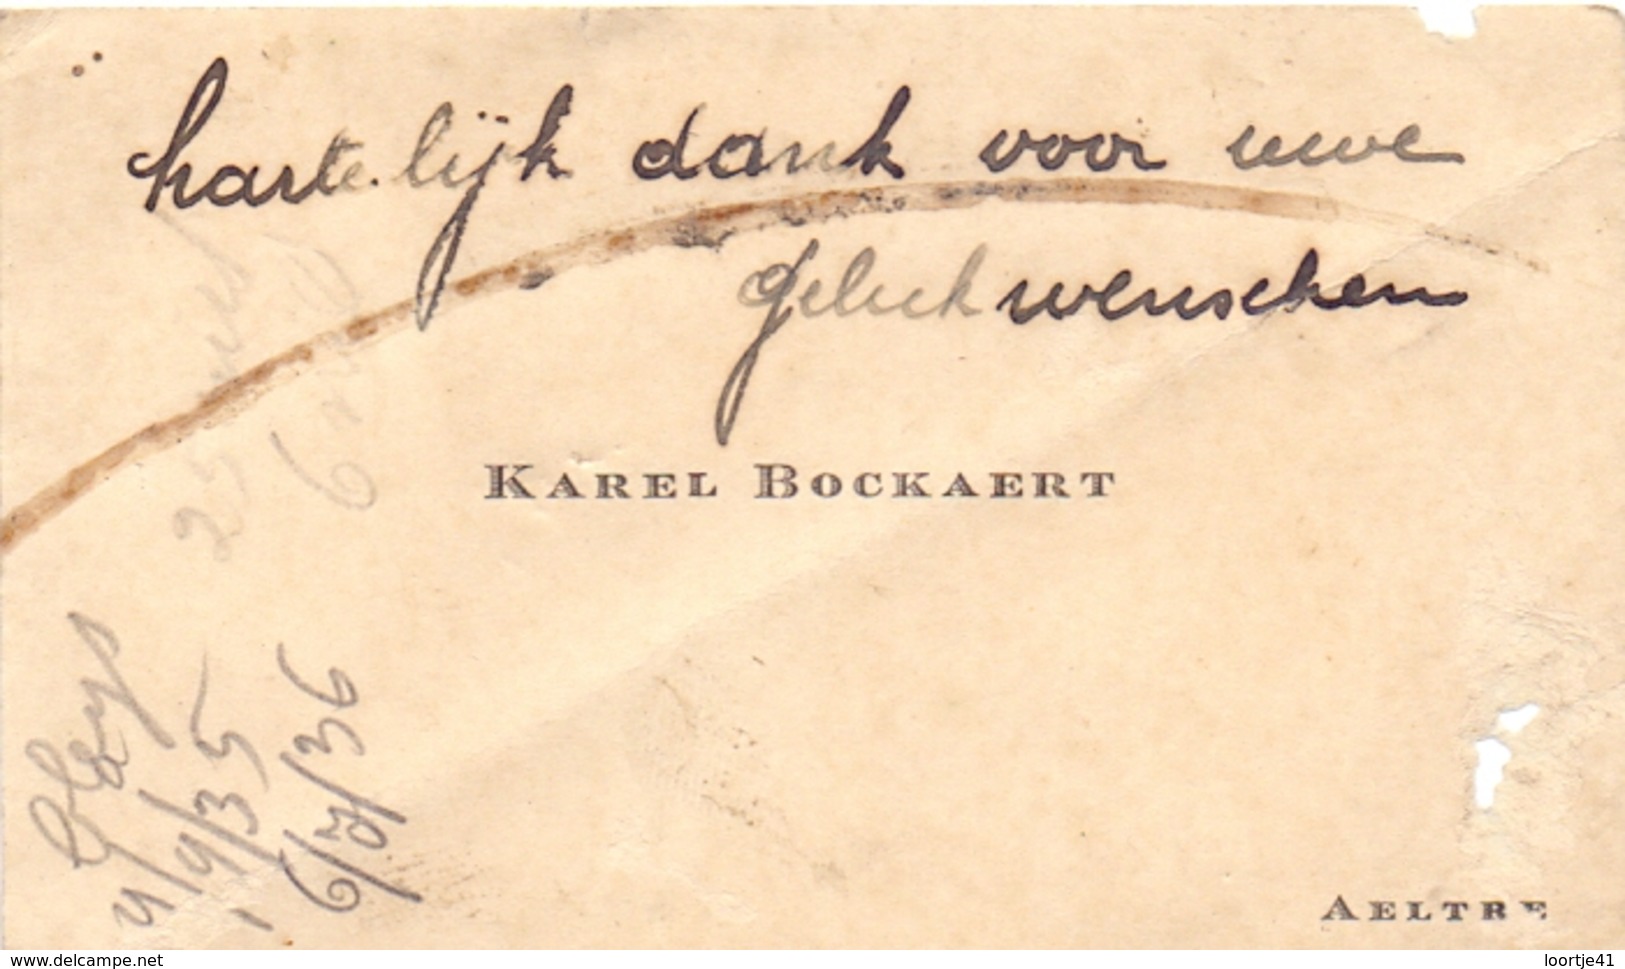 hartelijk dank voor uwe
geluckwenschen
KAREL BOCKAERT
4/4/35
6/3/36
AELTRE
www.delcampe.net
loortje41